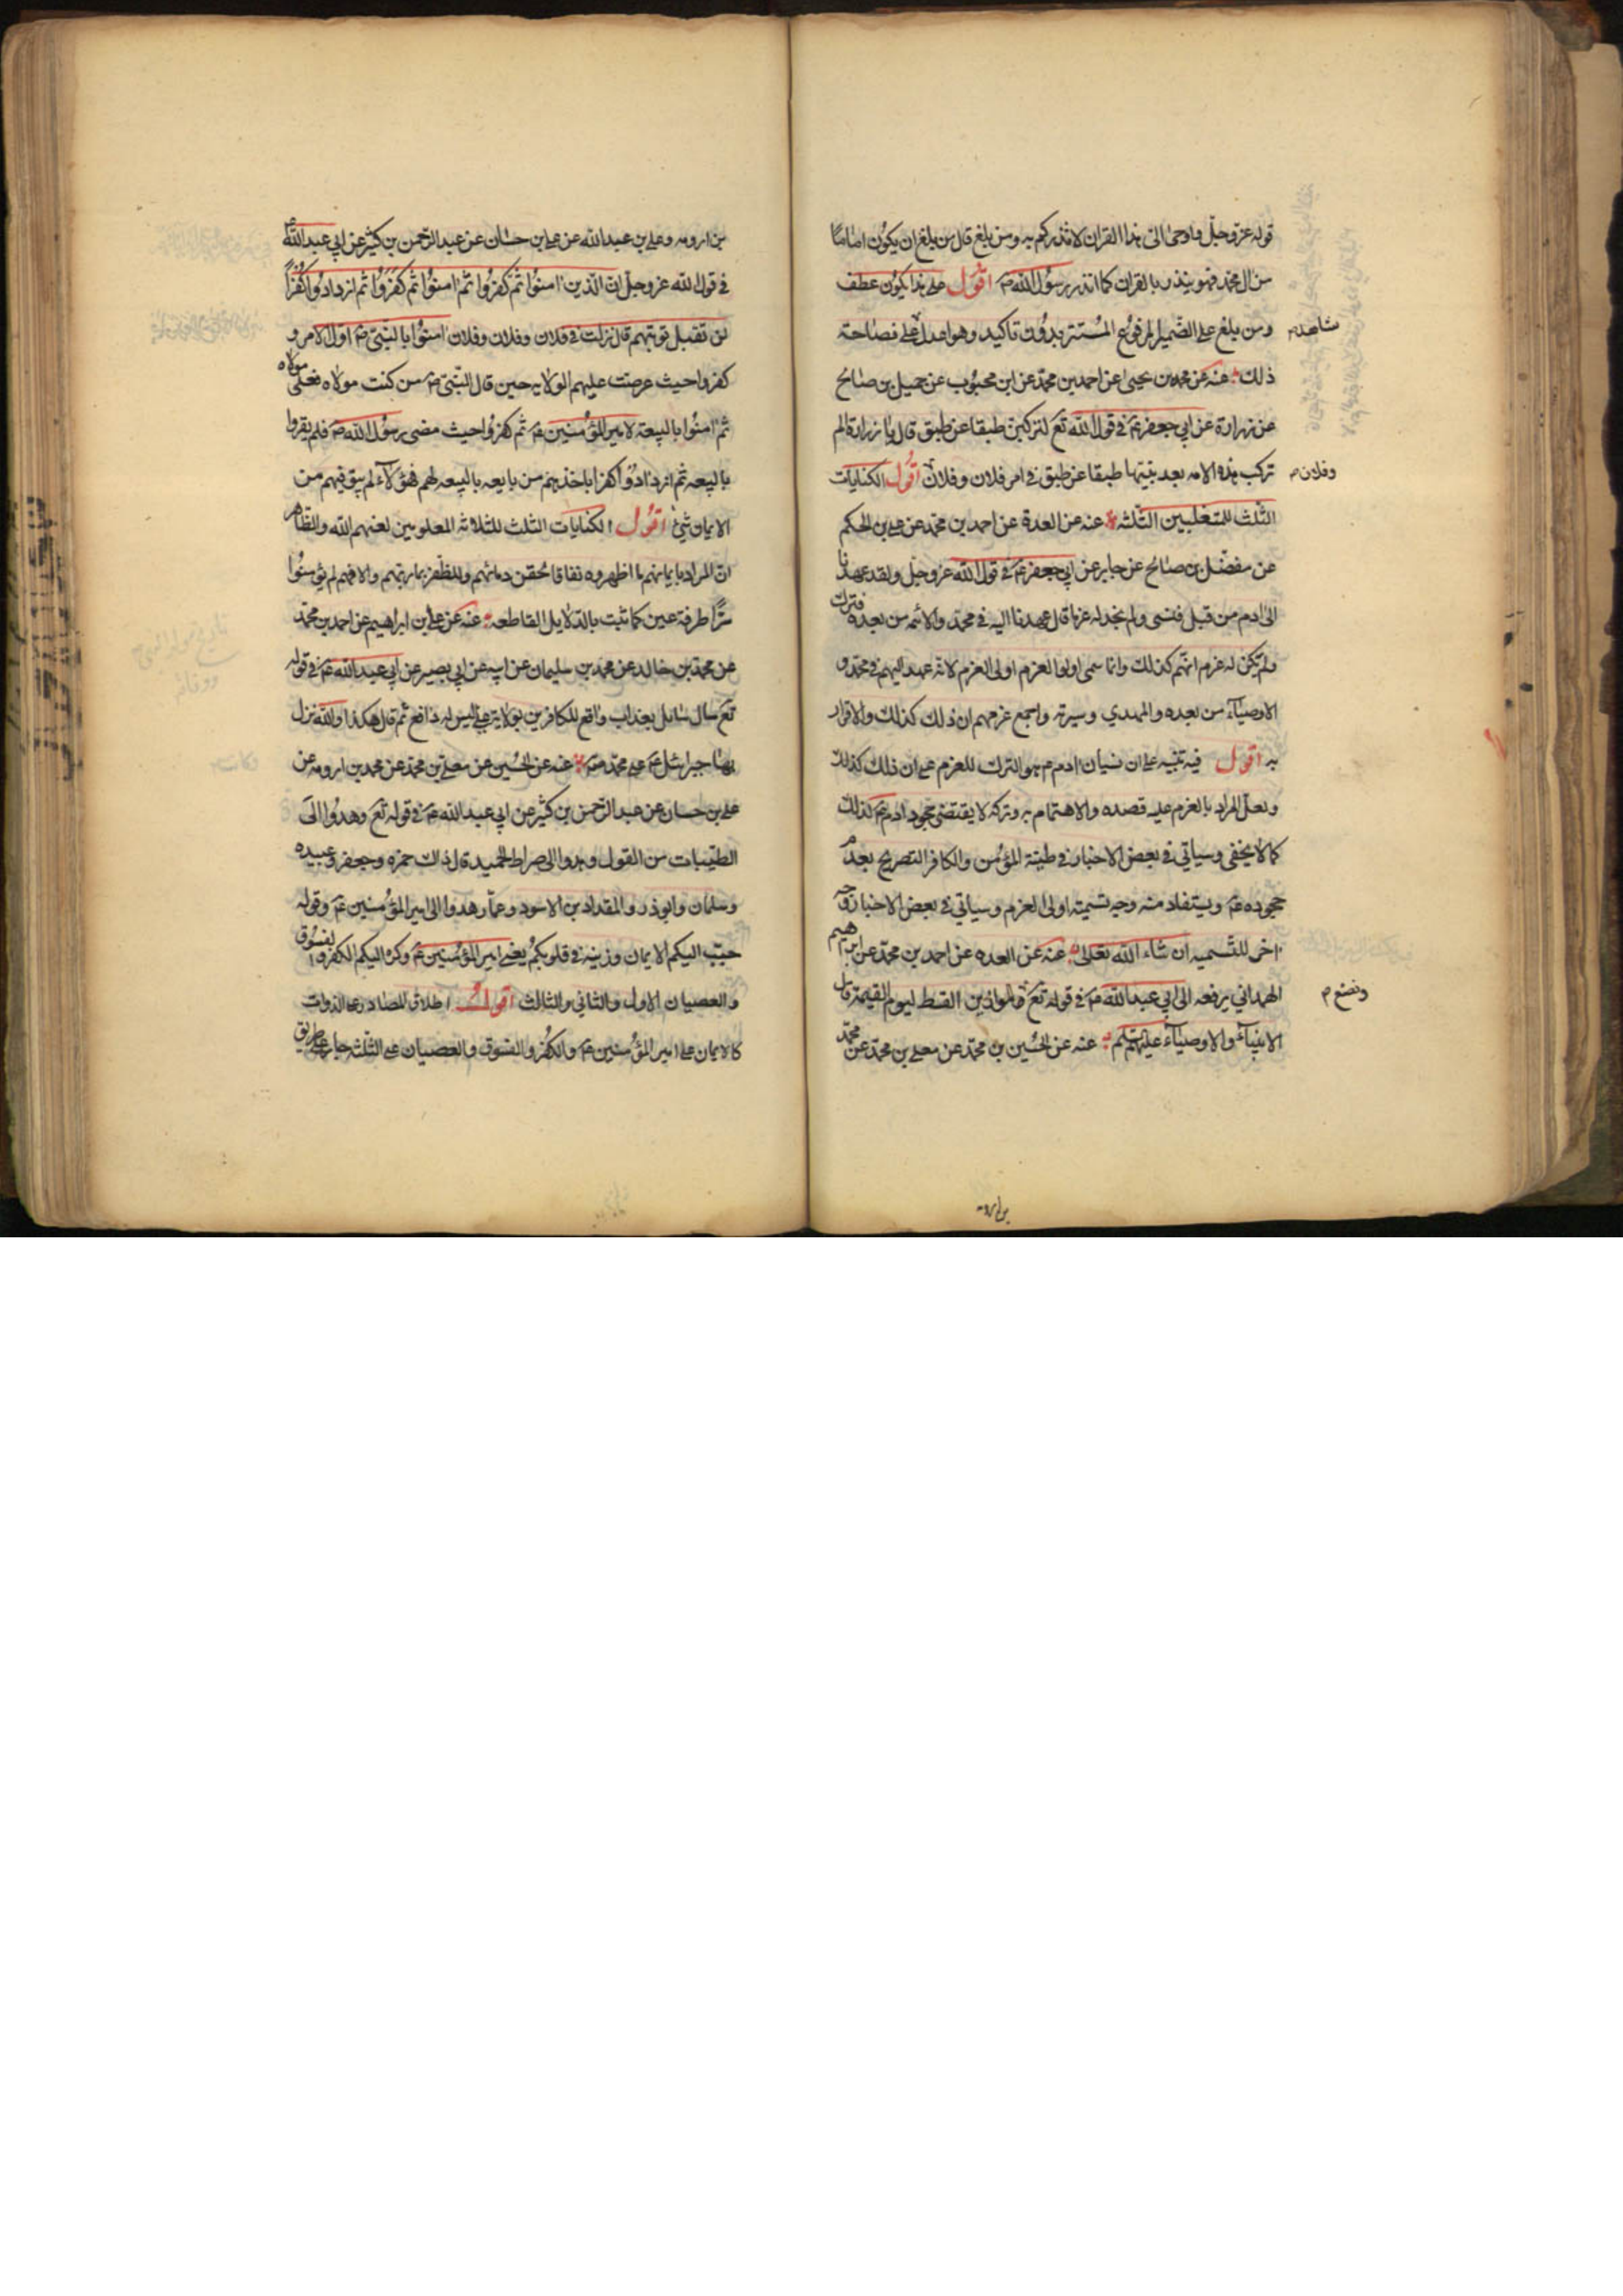 قوله عز وجل واوحى الى هذا القران لانذركم به ومن بلغ قال من بلغ ان يكون اماما
من ال محمد فهو ينذر بالقران كما انذر رسول الله ص اقول على هذا يكون عطف
ومن بلغ على الضمير المرفوع المستتر بدون تاكيد وهو اعدل على فصاحته
شاهد م
ذلك عنه عن محمد بن يحيى عن احمد بن محمد عن ابن محبوب عن جميل بن صالح
عن زرارة عن ابي جعفر ع في قول الله تع لتركبن طبقا عن طبق قال يا زرارة الم
تركب هذه الامه بعد نبيها طبقا عن طبق في امر فلان وفلان اقول الكنايات
وفلان م
الثلث للمتغلبين الثلثه عنه عن العدة عن احمد بن محمد عن علي بن الحكم
عن مفضل بن صالح عن جابر عن ابي جعفر ع في قول الله عز وجل ولقد عهدنا
الى ادم من قبل فنسى ولم نجد له عزما قال عهدنا اليه في محمد والائمه من بعده فترك
ولم يكن له عزم انهم كذلك وانما سمى اولوا العزم اولى العزم لانه عهد اليهم في محمد و
الاوصياء من بعده والمهدي وسيرته واجمع عزمهم ان ذلك كذلك والاقرار
به اقول فيه تنبيه على ان نسيان ادم ع هو الترك للعزم على ان ذلك كذلك
ولعل المراد بالعزم عليه قصده والاهتمام به وتركه لا يقتضى جحود ادم ع كذلك
كما لا يخفى وسياتي في بعض الاخبار في طينة المؤمن والكافر التصريح بعدم
جحوده ع ويستفاد منه وجه تسميته اولى العزم وسياتي في بعض الاخبار وجه
اخر للتسميه ان شاء الله تعالى عنه عن العده عن احمد بن محمد عن ابرهيم
الهمداني يرفعه الى ابي عبد الله ع في قوله تع الموازين القسط ليوم القيمة قال
ونضع م
الانبياء والاوصياء عليهم عنه عن الحسين بن محمد عن معلى بن محمد عن محمد
بن ارومه
بن ارومه وعلي بن عبد الله عن علي بن حسان عن عبد الرحمن بن كثير عن ابي عبد الله ع
في قول الله عز وجل ان الذين امنوا ثم كفروا ثم امنوا ثم كفروا ثم ازدادوا كفرا
لن تقبل توبتهم قال نزلت في فلان وفلان وفلان امنوا بالنبي ص اول الامر و
كفروا حيث عرضت عليهم الولايه حين قال النبي ص من كنت مولاه فعلي مولاه
ثم امنوا بالبيعة لامير المؤمنين ع ثم كفروا حيث مضى رسول الله ص فلم يقروا
بالبيعه ثم ازدادوا كفرا باخذهم من بايعه بالبيعه لهم فهؤلاء لم يبق فيهم من
الايمان شيئ اقول الكنايات الثلث للثلاثه لعنهم الله والظاهر
ان المراد بايمانهم ما اظهروه نفاقا لحقن دمائهم وللظفر والا فهم لم يؤمنوا
طرفة عين كما ثبت بالدلايل القاطعه عنه عن علي بن ابراهيم عن احمد بن محمد
عن محمد بن خالد عن محمد بن سليمان عن ابيه عن ابي بصير عن ابي عبد الله ع في قوله
تع سال سائل بعذاب واقع للكافرين بولاية علي ليس له دافع ثم قال هكذا والله نزل
بها جبرائيل ع على محمد ص عنه عن الحسين عن معلى بن محمد عن محمد بن ارومه عن
علي بن حسان عن عبد الرحمن بن كثير عن ابي عبد الله ع في قوله تع وهدوا الى
الطيبات من القول وهدوا الى صراط الحميد قال ذاك حمزه وجعفر وعبيده
وسلمان وابوذر والمقداد بن الاسود وعمار هدوا الى امير المؤمنين ع وقوله
حبب اليكم الايمان وزينه في قلوبكم يعني امير المؤمنين ع وكره اليكم الكفر والفسوق
والعصيان الاول والثاني والثالث اقول اطلاق المصادر على الذوات
كالايمان على امير المؤمنين ع والكفر والفسوق والعصيان على الثلثه جار على طريق